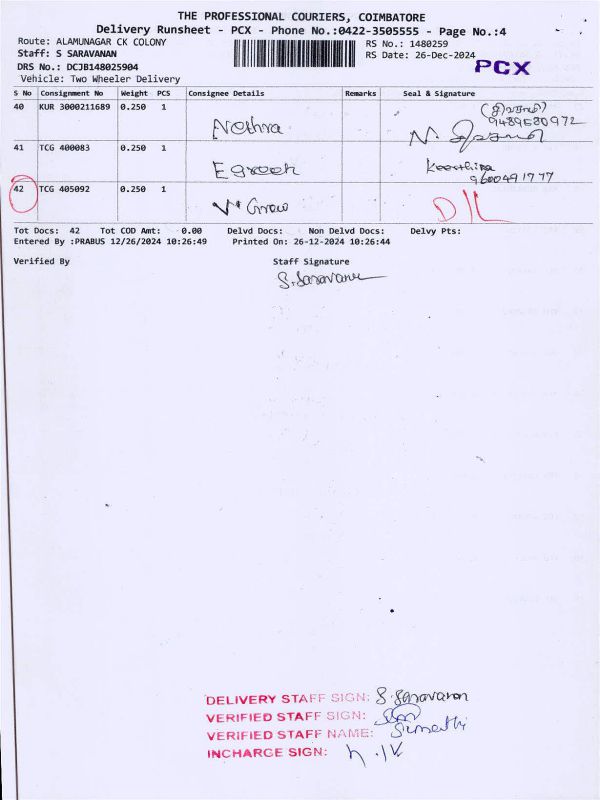 THE PROFESSIONAL COURIERS, COIMBATORE
Delivery Runsheet - PCX - Phone No.:0422-3505555 - Page No.:4
Route: ALAMUNAGAR CK COLONY
RS No.: 1480259
Staff: S SARAVANAN
RS Date: 26-Dec-2024
DRS No.: DCJB148025904
PCX
Vehicle: Two Wheeler Delivery
S No Consignment No Weight PCS Consignee Details Remarks Seal & Signature
40 KUR 3000211689 0.250 1 Nethra
9489580972
41 TCG 400083 0.250 1 Keerthika
9600491777
42 TCG 405092 0.250 1 D/L
Tot Docs: 42 Tot COD Amt: 0.00 Delvd Docs: Non Delvd Docs: Delvy Pts:
Entered By :PRABUS 12/26/2024 10:26:49 Printed On: 26-12-2024 10:26:44
Verified By Staff Signature
S. Saravanan
DELIVERY STAFF SIGN: S. Saravanan
VERIFIED STAFF SIGN:
VERIFIED STAFF NAME:
INCHARGE SIGN: